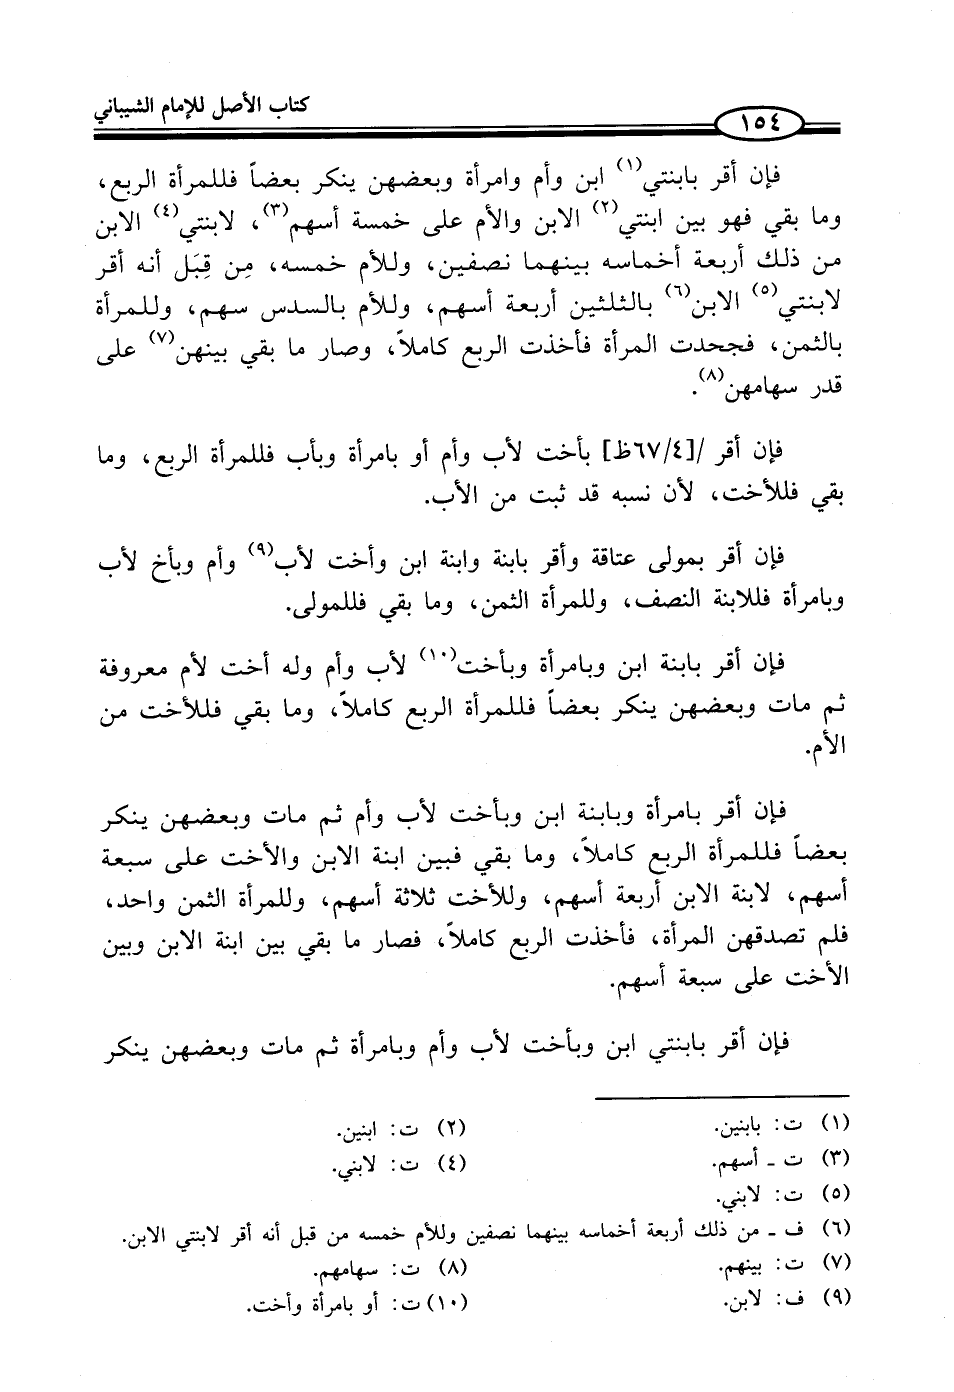 كتاب الأصل للإمام الشيباني
١٥٤
فإن أقر بابنتي(١) ابن وأم وامرأة وبعضهن ينكر بعضاً فللمرأة الربع،
وما بقي فهو بين ابنتي(٢) الابن والأم على خمسة أسهم(٣)، لابنتي(٤) الابن
من ذلك أربعة أخماسه بينهما نصفين، وللأم خمسه، مِن قِبَل أنه أقر
لابنتي(٥) الابن(٦) بالثلثين أربعة أسهم، وللأم بالسدس سهم، وللمرأة
بالثمن، فجحدت المرأة فأخذت الربع كاملاً، وصار ما بقي بينهن(٧) على
قدر سهامهن(٨).
فإن أقر /[٦٧/٤ظ] بأخت لأب وأم أو بامرأة وبأب فللمرأة الربع، وما
بقي فللأخت، لأن نسبه قد ثبت من الأب.
فإن أقر بمولى عتاقة وأقر بابنة وابنة ابن وأخت لأب(٩) وأم وبأخ لأب
وبامرأة فللابنة النصف، وللمرأة الثمن، وما بقي فللمولى.
فإن أقر بابنة ابن وبامرأة وبأخت(١٠) لأب وأم وله أخت لأم معروفة
ثم مات وبعضهن ينكر بعضاً فللمرأة الربع كاملاً، وما بقي فللأخت من
الأم.
فإن أقر بامرأة وبابنة ابن وبأخت لأب وأم ثم مات وبعضهن ينكر
بعضاً فللمرأة الربع كاملاً، وما بقي فبين ابنة الابن والأخت على سبعة
أسهم، لابنة الابن أربعة أسهم، وللأخت ثلاثة أسهم، وللمرأة الثمن واحد،
فلم تصدقهن المرأة، فأخذت الربع كاملاً، فصار ما بقي بين ابنة الابن وبين
الأخت على سبعة أسهم.
فإن أقر بابنتي ابن وبأخت لأب وأم وبامرأة ثم مات وبعضهن ينكر
(١) ت: بابنين. (٢) ت: ابنين.
(٣) ت ـ أسهم. (٤) ت: لابني.
(٥) ت: لابني.
(٦) ف ـ من ذلك أربعة أخماسه بينهما نصفين وللأم خمسه من قبل أنه أقر لابنتي الابن.
(٧) ت: بينهم. (٨) ت: سهامهم.
(٩) ف: لابن. (١٠) ت: أو بامرأة وأخت.